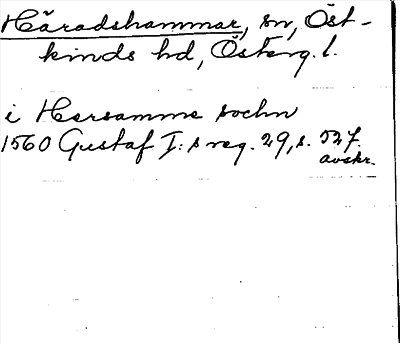 Häradshammar, sn, Öst-
kinds hd, Österg. l.
i Hersamme sochn
1560 Gustaf I:s reg. 29, s. 527.
avskr.